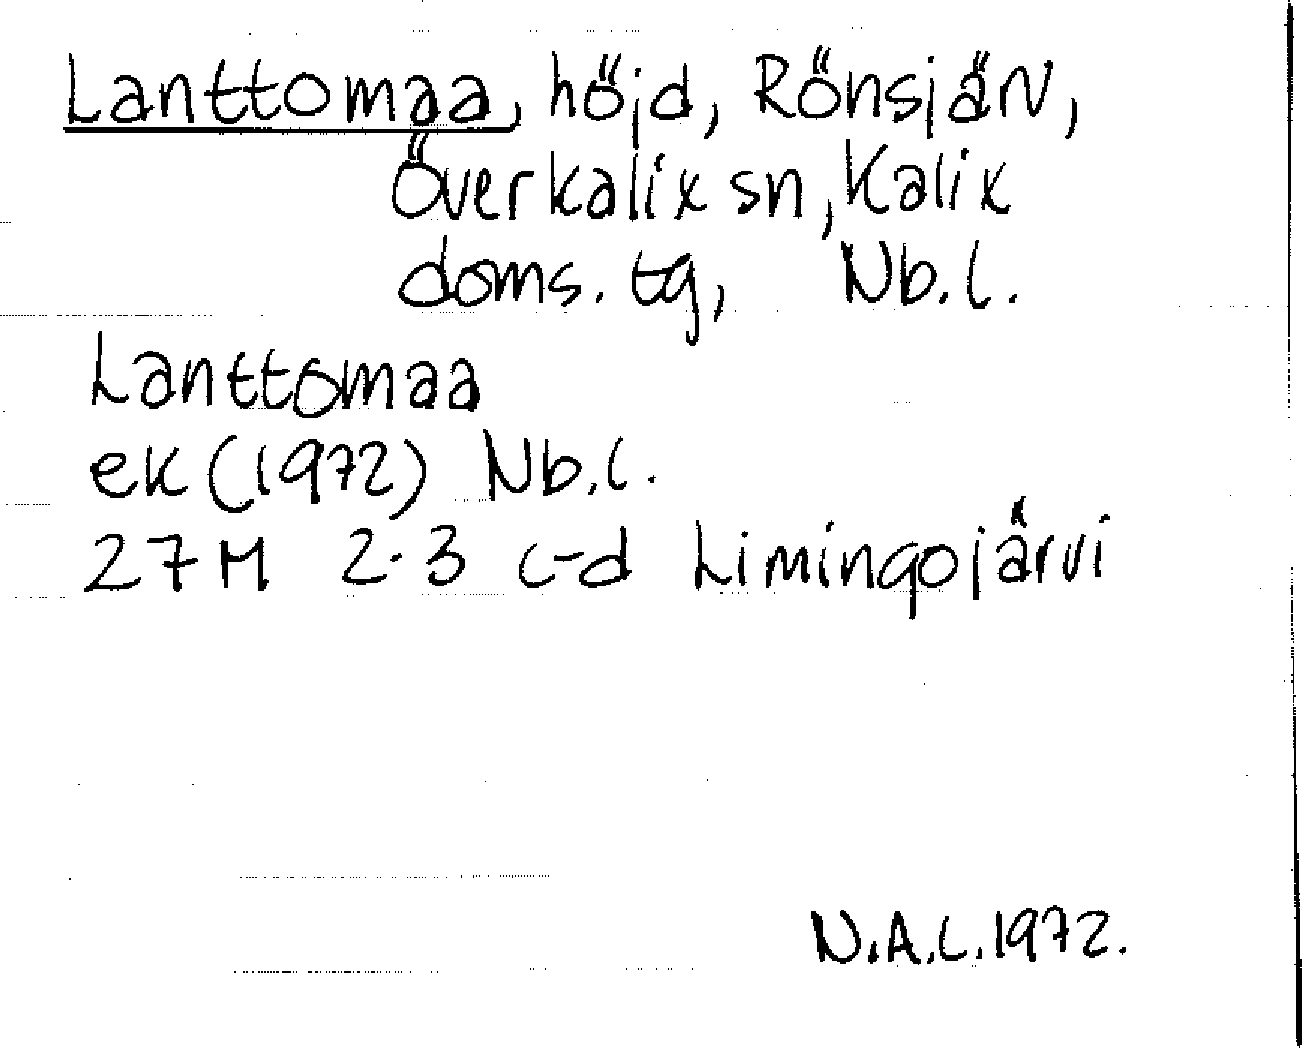 Lanttomaa, höjd, Rönsjärv,
Överkalix sn, Kalix
doms. tg, Nb.l.
Lanttomaa
ek (1972) Nb.l.
27M 2-3 c-d Limingojärvi
N.A.L. 1972.